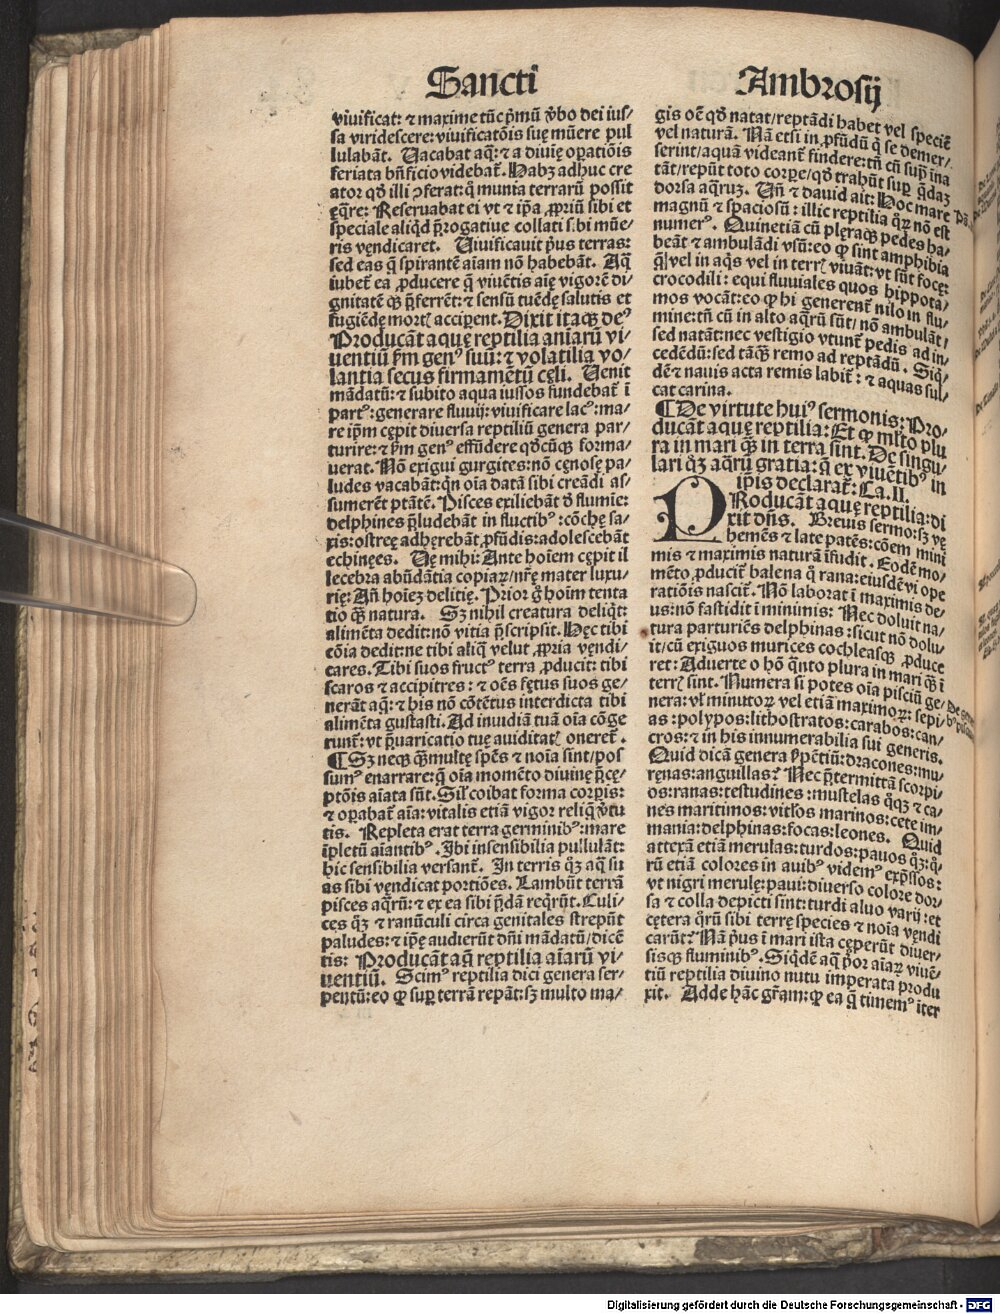 Sancti
viuificat: ⁊ maxime tūc pͥmū ꝟbo dei ius/
sa viridescere: viuificatōis suę mūere pul
lulabāt. Uacabat aq̄: ⁊ a diuīe oꝑatiōis
feriata bn̄ficio videbat᷑. Habꝫ adhuc cre
ator qd̄ illi ꝯferat: q̄ munia terrarū possit
ęq̄re: Reseruabat ei vt ⁊ ip̄a ꝓpriū sibi et
speciale aliqd̄ p̄rogatiue collati s.bi mūe/
ris vęndicaret. Uiuificauit pͥus terras:
sed eas q̄ spirantē aīam nō habebāt. Aq̄
iubet᷑ ea ꝓducere q̄ viuētis aīę vigorē di/
gnitatē qꝫ p̄ferrēt: ⁊ sensū tuēdę salutis et
fugiēdę mortꝭ acciꝑent. Dixit itaqꝫ deꝰ
Producāt aquę reptilia aniarū vi/
uentiū ẜm genꝰ suū: ⁊ volatilia vo/
lantia secus firmamētū cęli. Uenit
mādatū: ⁊ subito aqua iussos fundebat᷑ ī
partꝰ: generare fluuij: viuificare lacꝰ: ma/
re ip̄m cępit diuersa reptiliū genera par/
turire: ⁊ ẜm genꝰ effūdere qd̄cūqꝫ forma/
uerat. Nō exigui gurgites: nō cęnosę pa/
ludes vacabāt: qͥn oīa datā sibi creādi as/
sumerēt ptātē. Pisces exiliebāt d̄ flumīe:
delphines p̄ludebāt in fluctibꝰ: cōchę sa/
xis: ostreę adhęrebāt ꝓfūdis: adolescebāt
echinęes. Uę mihi: Ante hoīem cępit il
lecebra abūdātia copiaꝝ/nr̄ę mater luxu/
rię: Añ hoīeꝫ delitię. Prior g̊ hoīm tenta
tio qꝫ̄ natura. Sꝫ nihil creatura deliqͥt:
alimēta dedit: nō vitia p̄scripsit. Hęc tibi
cōia dedit: ne tibi aliq̄ velut ꝓpria vęndi/
cares. Tibi suos fructꝰ terra ꝓducit: tibi
scaros ⁊ accipitres: ⁊ oēs fętus suos ge/
nerāt aq̄: ⁊ his nō cōtētus interdicta tibi
alimēta gustasti. Ad inuidiā tuā oīa cōge
runt᷑: vt p̄uaricatio tuę auiditatꝭ oneret᷑.
¶ Sꝫ neqꝫ qꝫ̄ multę sp̄ēs ⁊ noīa sint/pos
sumꝰ enarrare: q̄ oīa momēto diuinę p̄cę/
ptōis aīata sūt. Sil̄ coibat forma corꝑis:
⁊ oꝑabat᷑ aīa: vitalis etiā vigor reliqͥ ꝟtu
tis. Repleta erat terra germinibꝰ: mare
īpletū aīantibꝰ. Ibi insensibilia pullulāt:
hic sensibilia versant᷑. In terris qͦꝫ aq̄ su
as sibi vęndicat portiōes. Lambūt terrā
pisces aq̄rū: ⁊ ex ea sibi p̄dā reqͥrūt. Culi/
ces qͦꝫ ⁊ ranūculi circa genitales strepūt
paludes: ⁊ ip̄ę audierūt dn̄i mādatū/dicē
tis: Producāt aq̄ reptilia aīarū vi/
uentiū. Scimꝰ reptilia dici genera ser/
pentū: eo ꝙ suꝑ terrā repāt: sꝫ multo ma/
Ambrosij
gis oē qd̄ natat/reptādi habet vel speciē
vel naturā. Nā etsi in ꝓfūdū q̄ se demer/
serint/aquā videant᷑ findere: tn̄ cū suꝑ ina
tāt/repūt toto corꝑe/qd̄ trahūt suꝑ q̄daꝫ
dorsa aq̄ruꝫ. Uñ ⁊ dauid ait: Hoc mare
magnū ⁊ spaciosū: illic reptilia qͦꝝ nō est
numerꝰ. Quinetiā cū plęraqꝫ pedes ha/
beāt ⁊ ambulādi vsū: eo ꝙ sint amphibia
q̄ vel in aqͥs vel in terrꝭ viuāt: vt sūt focę:
crocodili: equi fluuiales quos hippota/
mos vocāt: eo ꝙ hi generent᷑ nilo in flu/
mine: tn̄ cū in alto aq̄rū sūt/nō ambulāt/
sed natāt: nec vestigio vtunt᷑ pedis ad in/
cedēdū: sed tāqꝫ̄ remo ad reptādū. Siqͥ/
dē ⁊ nauis acta remis labit᷑: ⁊ aquas sul/
cat carina.
¶ De virtute huiꝰ sermonis: Pro/
ducāt aquę reptilia: Et ꝙ ml̄to plu
ra in mari qꝫ̄ in terra sint. De singu/
lari qͦꝫ aq̄rū gratia: q̄ ex viuētibꝰ in
ip̄is declarat᷑: Ca. II.
PRoducāt aquę reptilia: di
xit dn̄s. Breuis sermo: sꝫ vę
hemēs ⁊ late patēs: cōem mini
mis ⁊ maximis naturā īfudit. Eodē mo/
mēto ꝓducit᷑ balena qͦ rana: eiusdē vi ope
ratiōis nascit᷑. Nō laborat ī maximis de/
us: nō fastidit ī minimis: Nec doluit na/
tura parturiēs delphinas: sicut nō dolu/
it/cū exiguos murices cochleasqꝫ ꝓduce
ret: Aduerte o hō qͣnto plura in mari qꝫ̄ ī
terrꝭ sint. Numera si potes oīa pisciū ge/
nera: vl̓ minutoꝝ vel etiā maximoꝝ: sepi/
as: polypos: lithostratos: carabos: can/
cros: ⁊ in his innumerabilia sui generis.
Quid dicā genera ẜpētiū: dracones: mu/
ręnas: anguillas? Nec p̄termittā scorpi/
os: ranas: testudines: mustelas qͦqꝫ ⁊ ca/
nes maritimos: vitl̓os marinos: cete im/
mania: delphinas: focas: leones. Quid
attexā etiā merulas: turdos: pauos qͦꝫ: qͦ/
rū etiā colores in auibꝰ videmꝰ exp̄ssos:
vt nigri merulę: paui: diuerso colore dor/
sa ⁊ colla depicti sint: turdi aluo varij: et
cętera qͦrū sibi terrę species ⁊ noīa vęndi
carūt? Nā pͥus ī mari ista cęperūt diuer/
sisqꝫ fluminibꝰ. Siqͥdē aq̄ pͥor aīaꝝ viuē/
tiū reptilia diuino nutu imperata produ
xit. Adde hāc gr̄am: ꝙ ea q̄ timemꝰ iter